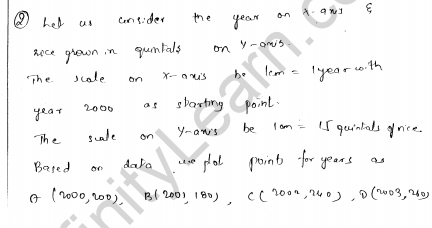 ② Let us consider the year on x-axis &
rice grown in quintals on Y-axis.
The scale on x-axis be 1cm = 1 year with
year 2000 as starting point.
The scale on Y-axis be 1cm = 15 quintals of rice.
Based on data we plot points for years as
A (2000, 200), B(2001, 180), C(2002, 240), D(2003, 260)